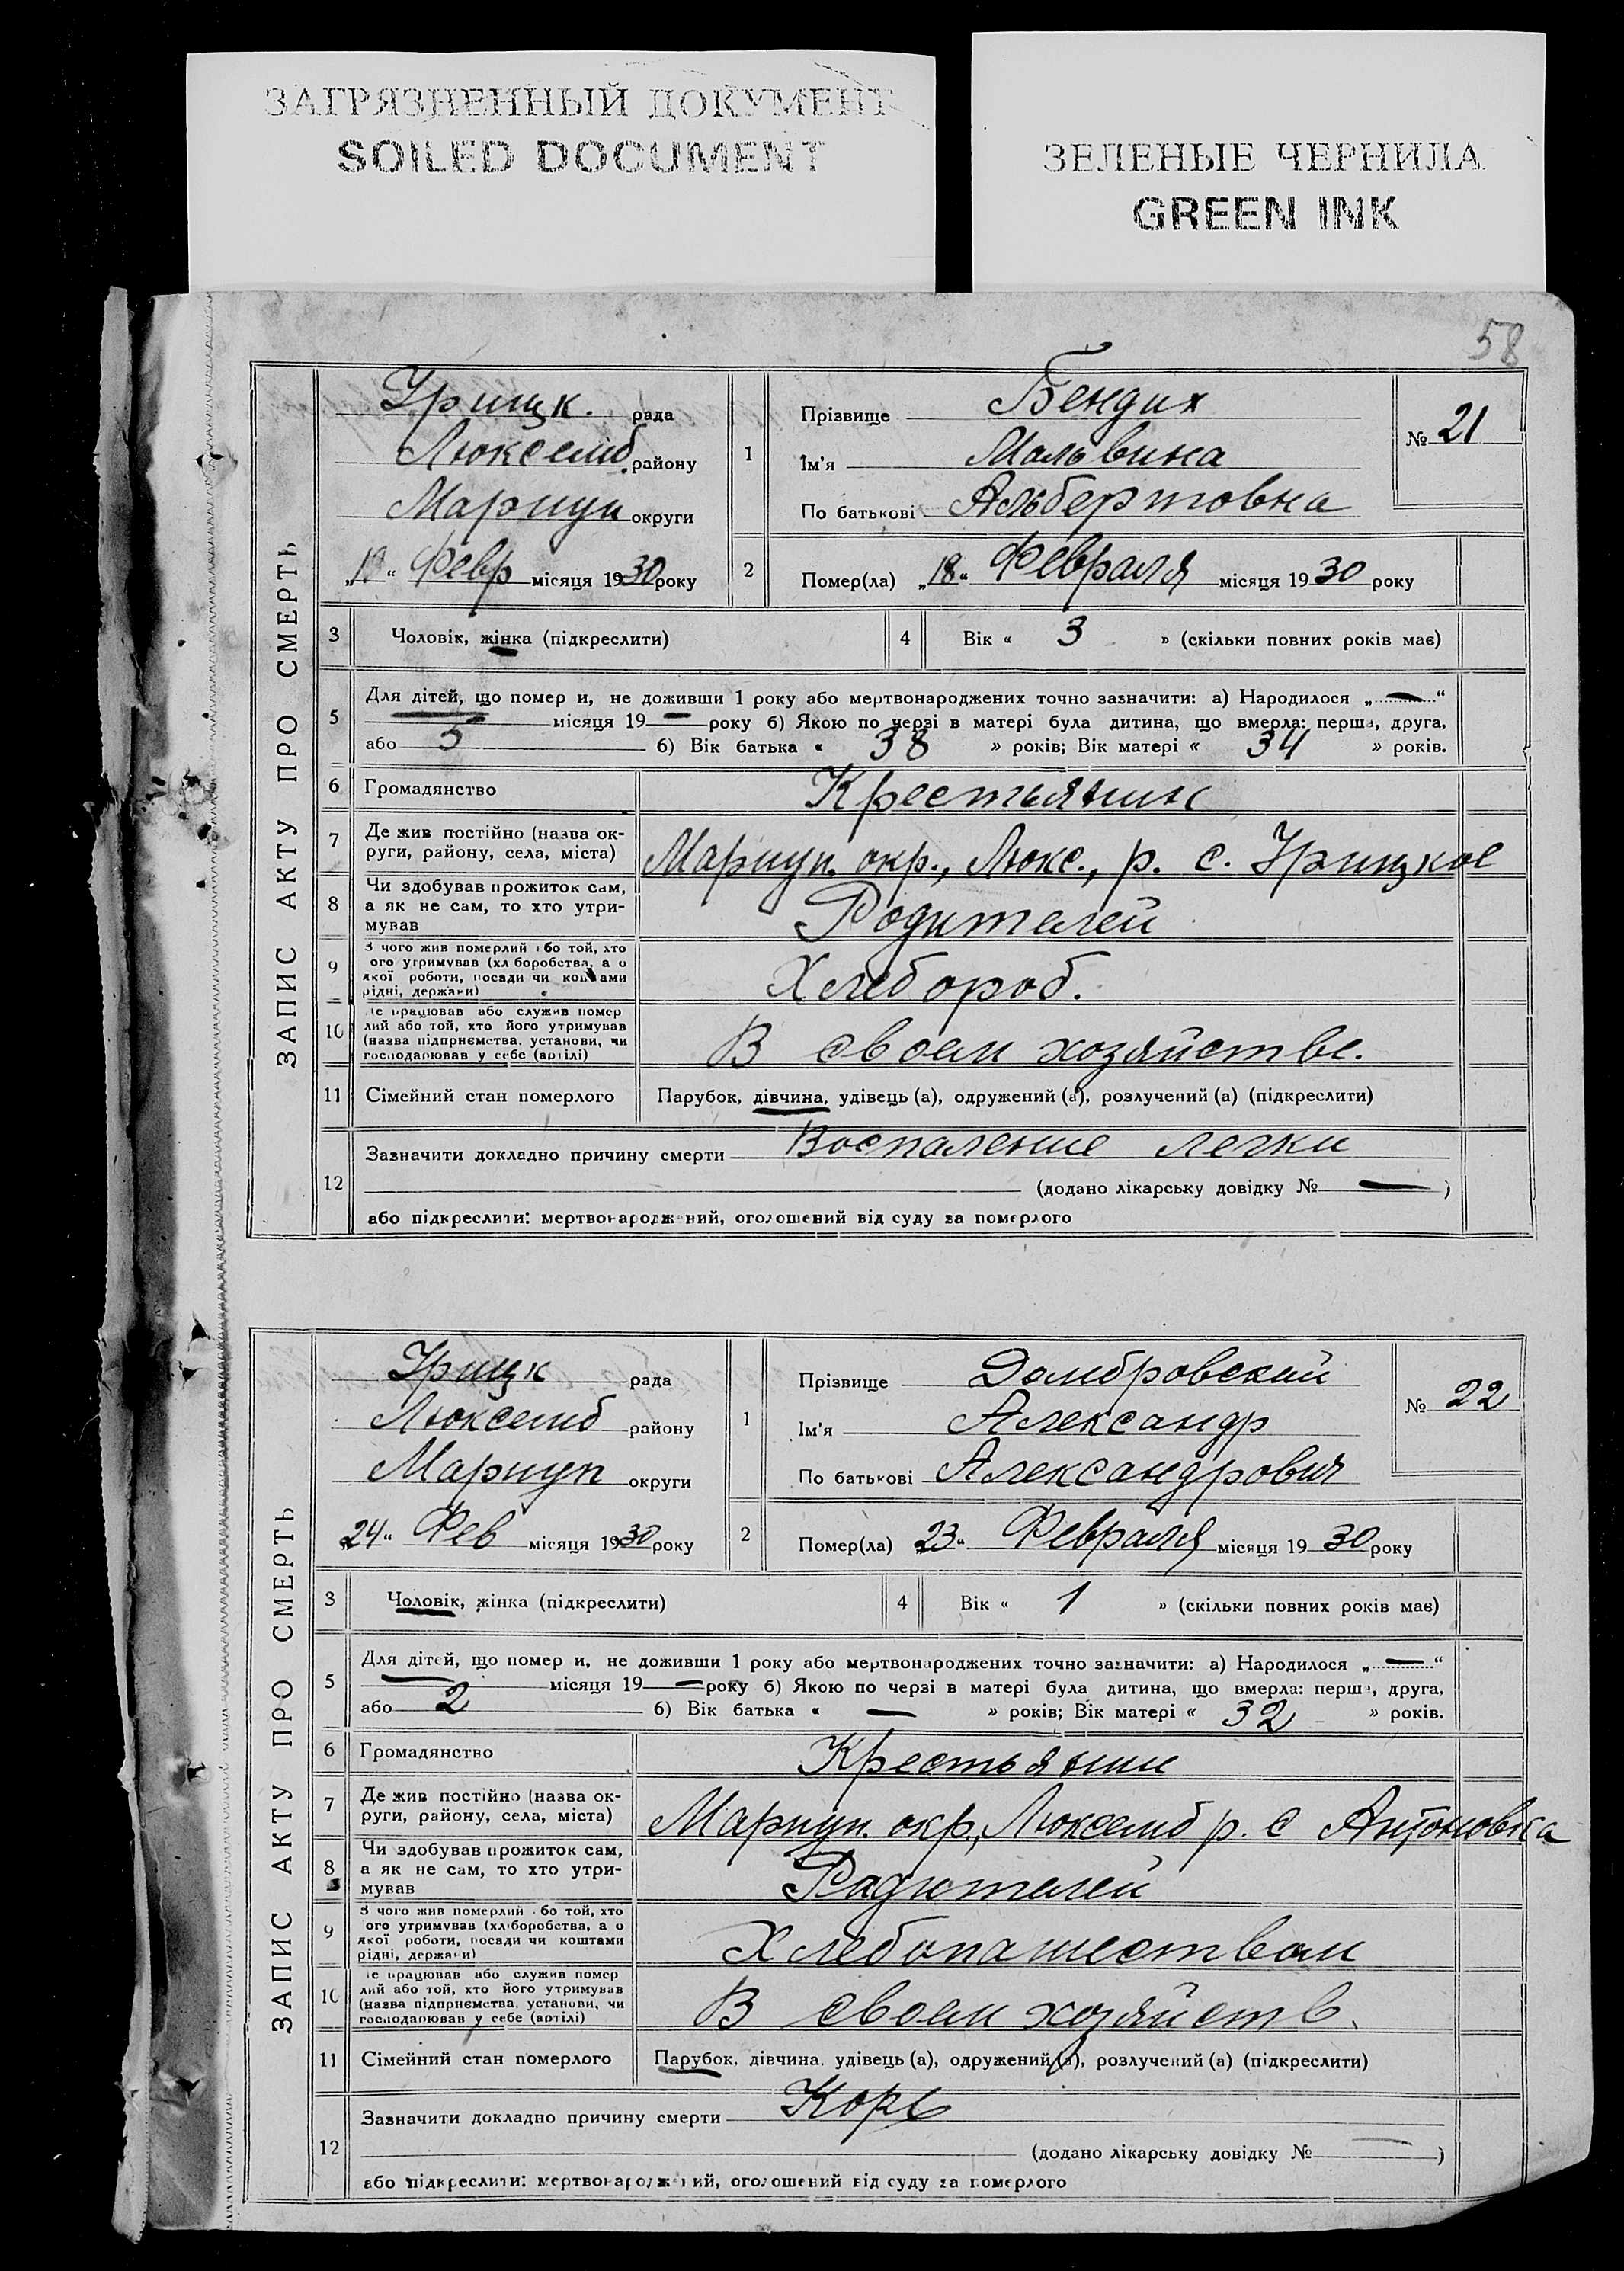 ЗАГРЯЗНЕННЫЙ ДОКУМЕНТ
SOILED DOCUMENT
ЗЕЛЕНЫЕ ЧЕРНИЛА
GREEN INK
58
ЗАПИС АКТУ ПРО СМЕРТЬ
Урицк. рада
Люксемб. району
Мариуп округи
" " Февр місяця 1930 року
1
Прізвище Бендих
Ім'я Мальвина
По батькові Альбертовна
№ 21
2
Помер(ла) „18“ Февраля місяця 1930 року
3 Чоловік, жінка (підкреслити)
4 Вік « 3 » (скільки повних років має)
5
Для дітей, що помер и, не доживши 1 року або мертвонароджених точно зазначити: а) Народилося „—“
— місяця 19— року б) Якою по черзі в матері була дитина, що вмерла: перша, друга,
або 5 б) Вік батька « 38 » років; Вік матері « 34 » років.
6 Громадянство Крестьянин
7 Де жив постійно (назва ок-
руги, району, села, міста) Мариуп. окр., Люкс., р. с. Урицкое
8 Чи здобував прожиток сам,
а як не сам, то хто утри-
мував Родителей
9 З чого жив померлий або той, хто
ого утримував (хл боробства, а о
якої роботи, посади чи коштами
рідні, держави) Хлебороб.
10 е працював або служив помер
лий або той, хто його утримував
(назва підприємства, установи, чи
господарював у себе (артілі) В своем хозяйстве.
11 Сімейний стан померлого Парубок, дівчина, удівець (а), одружений (а), розлучений (а) (підкреслити)
12 Зазначити докладно причину смерти Воспаление легки
(додано лікарську довідку № — )
або підкреслити: мертвонароджений, оголошений від суду за померлого
ЗАПИС АКТУ ПРО СМЕРТЬ
Урицк рада
Люксемб району
Мариуп округи
„24“ Фев місяця 1930 року
1
Прізвище Домбровский
Ім'я Александр
По батькові Александрович
№ 22
2
Помер(ла) „23“ Февраля місяця 1930 року
3 Чоловік, жінка (підкреслити)
4 Вік « 1 » (скільки повних років має)
5
Для дітей, що помер и, не доживши 1 року або мертвонароджених точно зазначити: а) Народилося „—“
— місяця 19— року б) Якою по черзі в матері була дитина, що вмерла: перша, друга,
або 2 б) Вік батька « — » років; Вік матері « 32 » років.
6 Громадянство Крестьянин
7 Де жив постійно (назва ок-
руги, району, села, міста) Мариуп. окр, Люксемб р. с Антоновка
8 Чи здобував прожиток сам,
а як не сам, то хто утри-
мував Радителей
9 З чого жив померлий або той, хто
ого утримував (хліборобства, а о
якої роботи, посади чи коштами
рідні, держави) Хлебопашеством
10 е працював або служив помер
лий або той, хто його утримував
(назва підприємства, установи, чи
господарював у себе (артілі) В своем хозяйств.
11 Сімейний стан померлого Парубок, дівчина, удівець (а), одружений (а), розлучений (а) (підкреслити)
12 Зазначити докладно причину смерти Корь
(додано лікарську довідку № — )
або підкреслити: мертвонароджений, оголошений від суду за померлого